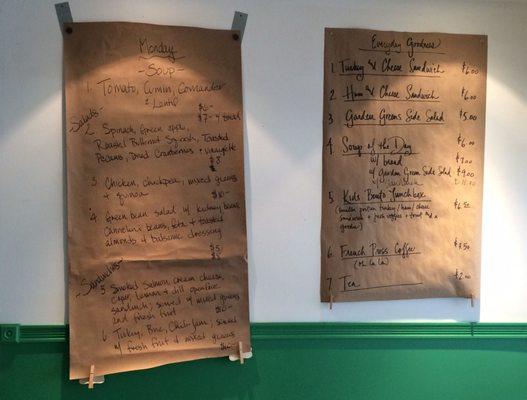 Monday
- Soup -
1. Tomato, Cumin, Coriander
& Lentil
$6-
$7- w/ bread
- Salads -
2. Spinach, Green apple,
Roasted Butternut Squash, Toasted
Pecans, Dried Cranberries + vinaigrette
$8
3. Chicken, chickpea, mixed greens
+ quinoa
$10-
4. Green bean salad w/ kidney beans,
Cannelini beans, feta + toasted
almonds & balsamic dressing
$5
- Sandwiches -
5. Smoked Salmon, cream cheese,
caper, lemon & dill openface
sandwich, served w/ mixed greens
and fresh fruit
6. Turkey, Brie, Chili Jam, served
w/ fresh fruit & mixed greens
Everyday Goodness
1. Turkey & Cheese Sandwich $6.00
2. Ham & Cheese Sandwich $6.00
3 Garden Greens Side Salad $5.00
4 Soup of the Day $6.00
w/ bread 7.00
w/ garden Green Side Salad $9.00
w/ Sandwich
5 Kids Bento Lunchbox $6.50
(smaller portion turkey/ham/cheese
sandwich + fresh veggies + fruit and a
goodie)
6 French Press Coffee $3.50
(Oh La La)
7. Tea $2.00